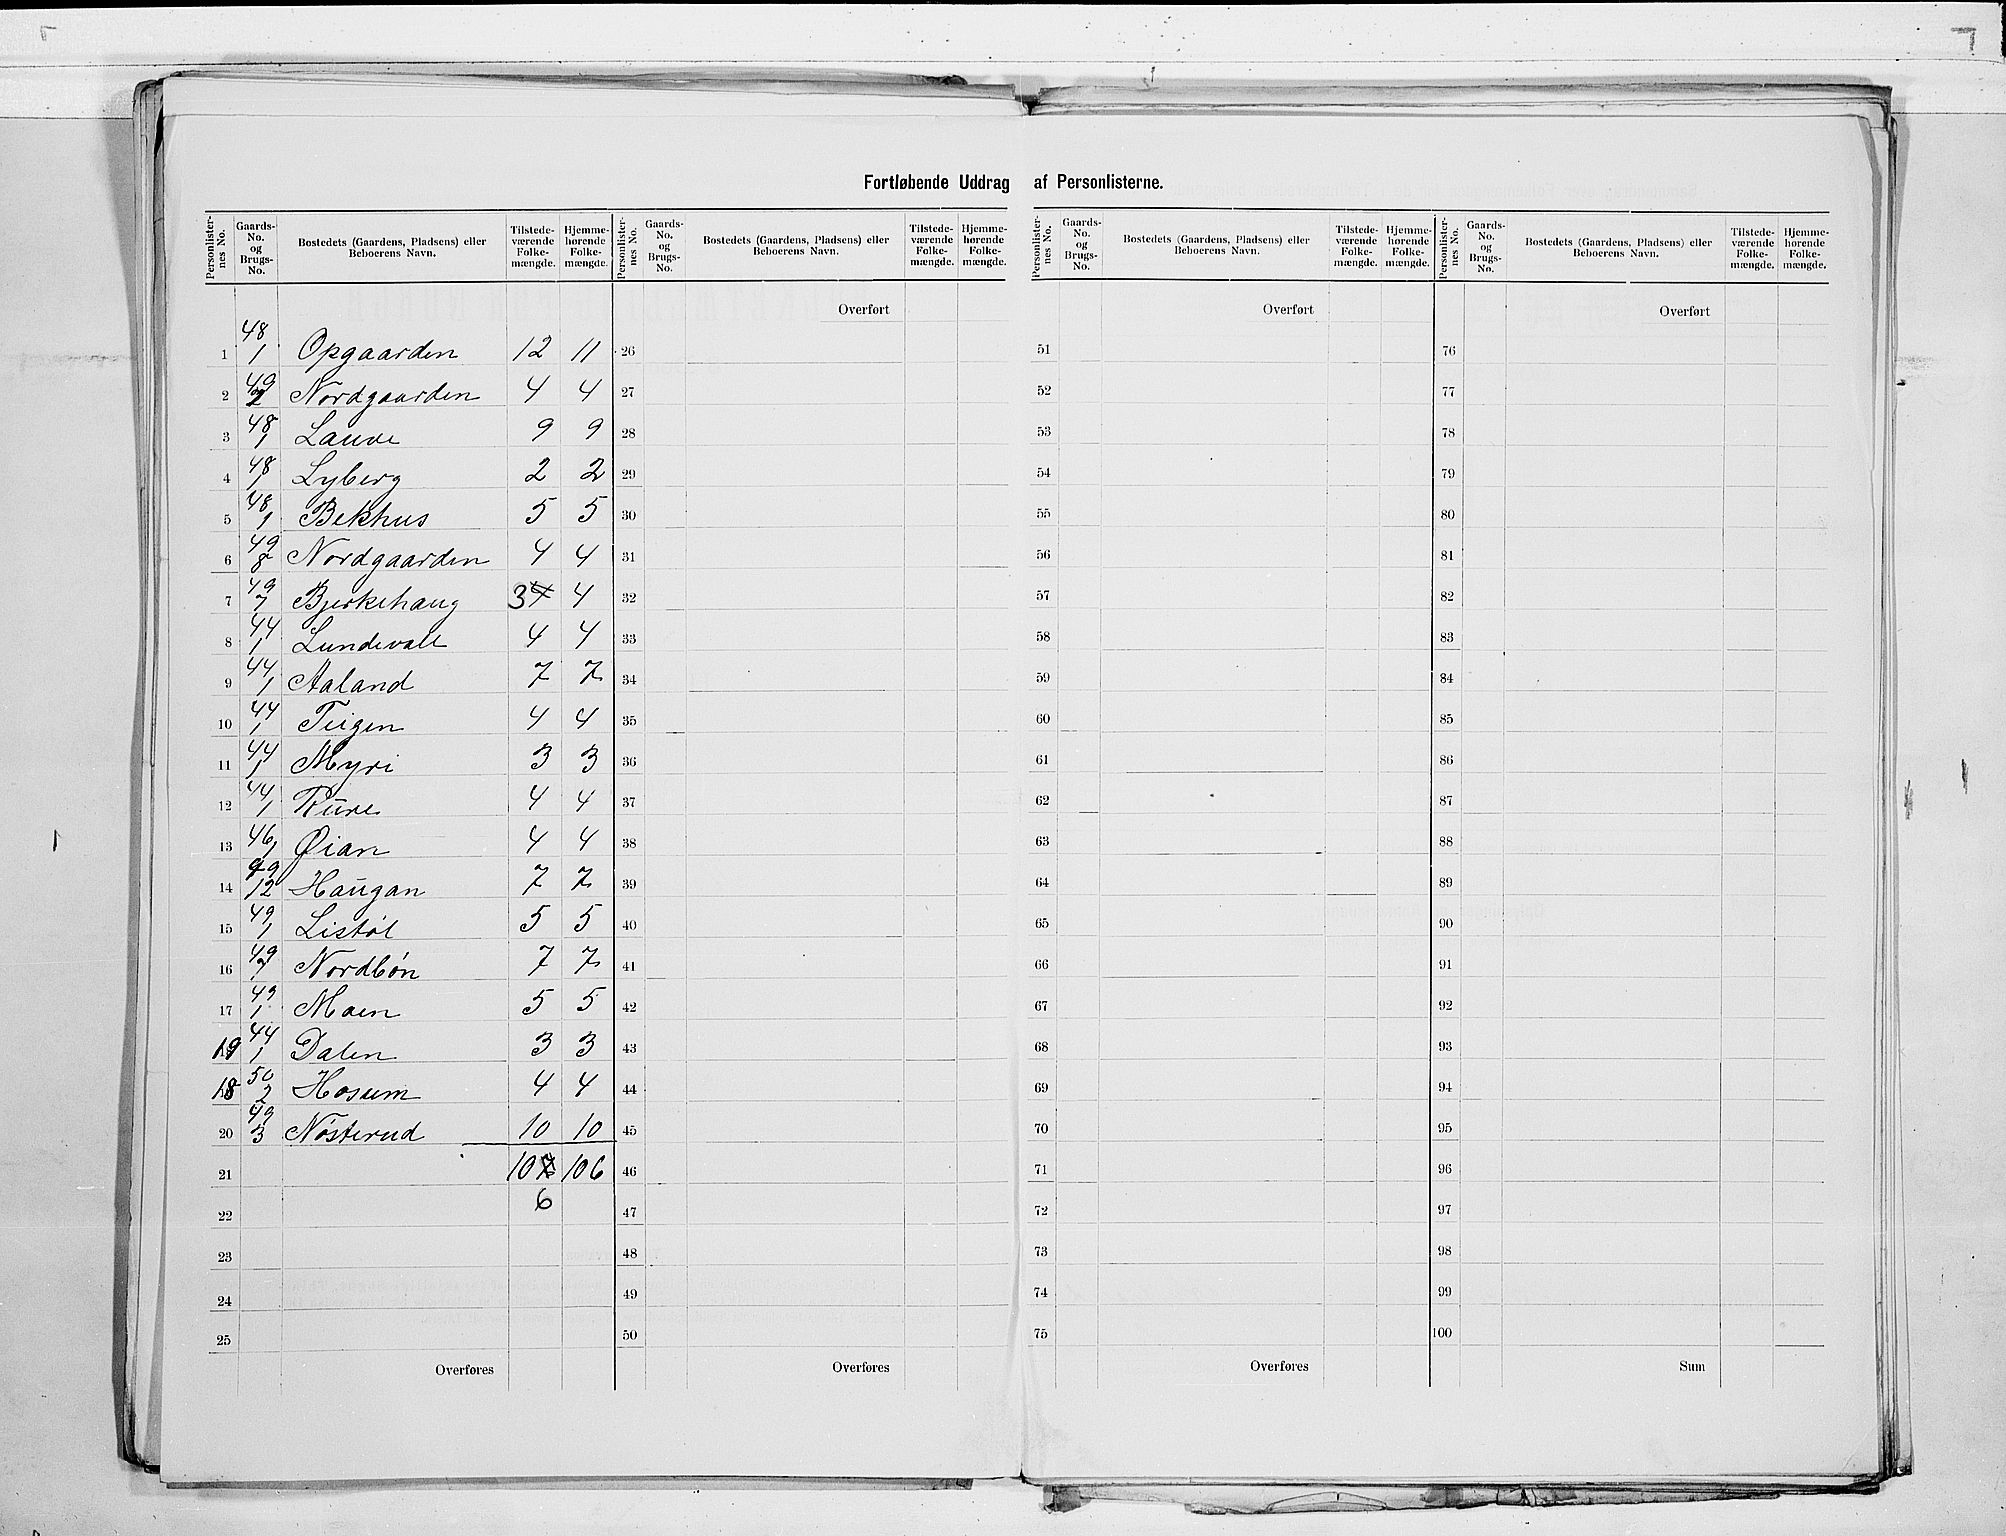 Fortløbende Uddrag af Personlisterne.
Personlister-nes No. | Gaards-No. og Brugs-No. | Bostedets (Gaardens, Pladsens) eller Beboerens Navn. | Tilstede-værende Folke-mængde. | Hjemme-hørende Folke-mængde.
Personlister-nes No. | Gaards-No. og Brugs-No. | Bostedets (Gaardens, Pladsens) eller Beboerens Navn. | Tilstede-værende Folke-mængde. | Hjemme-hørende Folke-mængde.
Personlister-nes No. | Gaards-No. og Brugs-No. | Bostedets (Gaardens, Pladsens) eller Beboerens Navn. | Tilstede-værende Folke-mængde. | Hjemme-hørende Folke-mængde.
Personlister-nes No. | Gaards-No. og Brugs-No. | Bostedets (Gaardens, Pladsens) eller Beboerens Navn. | Tilstede-værende Folke-mængde. | Hjemme-hørende Folke-mængde.
Overført Overført Overført
1 48/1 Opgaarden 12 11 26 51 76
2 49/2 Nordgaarden 4 4 27 52 77
3 48/1 Lauve 9 9 28 53 78
4 48/1 Lyberg 2 2 29 54 79
5 48/1 Bekhus 5 5 30 55 80
6 49/8 Nordgaarden 4 4 31 56 81
7 49/7 Bjerkehaug 3 4 4 32 57 82
8 44/1 Lundevall 4 4 33 58 83
9 44/1 Aaland 7 7 34 59 84
10 44/1 Teigen 4 4 35 60 85
11 44/1 Myri 3 3 36 61 86
12 44/1 Rure 4 4 37 62 87
13 46/1 Øian 4 4 38 63 88
14 49/12 Haugan 7 7 39 64 89
15 49/1 Listøl 5 5 40 65 90
16 49/7 Nordbøn 7 7 41 66 91
17 49/1 Moen 5 5 42 67 92
19 44/1 Dalen 3 3 43 68 93
18 50/2 Hosum 4 4 44 69 94
20 49/3 Nøsterud 10 10 45 70 95
21 107 106 46 71 96
22 6 47 72 97
23 48 73 98
24 49 74 99
25 50 75 100
Overføres Overføres Overføres Sum